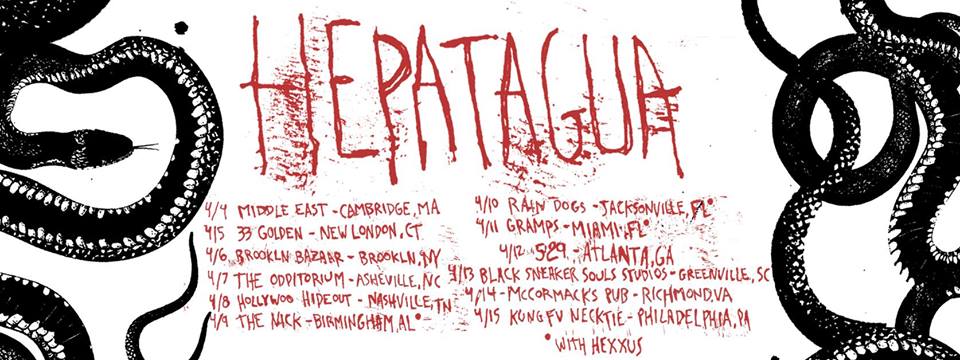 HEPATAGUA
4/4 MIDDLE EAST - CAMBRIDGE, MA
4/5 33 GOLDEN - NEW LONDON, CT
4/6 BROOKLN BAZAAR - BROOKLN, NY
4/7 THE ODDITORIUM - ASHEVILLE, NC
4/8 HOLLYWOO HIDEOUT - NASHVILLE, TN
4/9 THE NICK - BIRMINGHAM, AL*
4/10 RAIN DOGS - JACKSONVILLE, FL*
4/11 GRAMPS - MIAMI, FL*
4/12 529 - ATLANTA, GA
4/13 BLACK SNEAKER SOULS STUDIOS - GREENVILLE, SC
4/14 - MCCORMACK'S PUB - RICHMOND, VA
4/15 KUNG FU NECKTIE - PHILADELPHIA, PA
* WITH HEXXUS